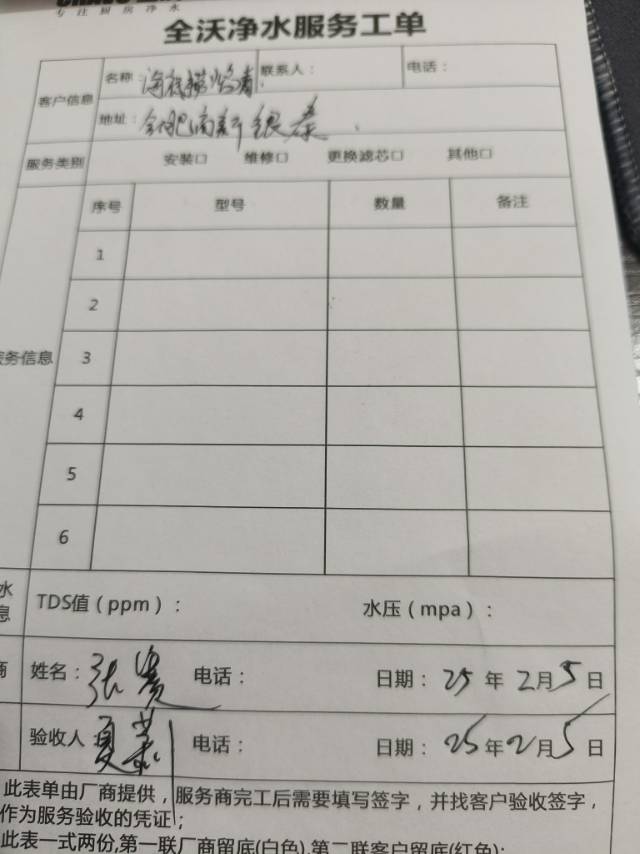 专注厨房净水
全沃净水服务工单
客户信息 名称 海底捞火锅 联系人： 电话：
地址： 合肥高新银泰
服务类别 安装☐ 维修☐ 更换滤芯☐ 其他☐
序号 型号 数量 备注
1
2
务信息 3
4
5
6
水
息 TDS值（ppm）： 水压（mpa）：
商 姓名： 张 电话： 日期： 25 年 2月 5 日
验收人： 夏莉 电话： 日期： 25 年 2月 5 日
此表单由厂商提供，服务商完工后需要填写签字，并找客户验收签字，
作为服务验收的凭证；
此表一式两份,第一联厂商留底(白色),第二联客户留底(红色);